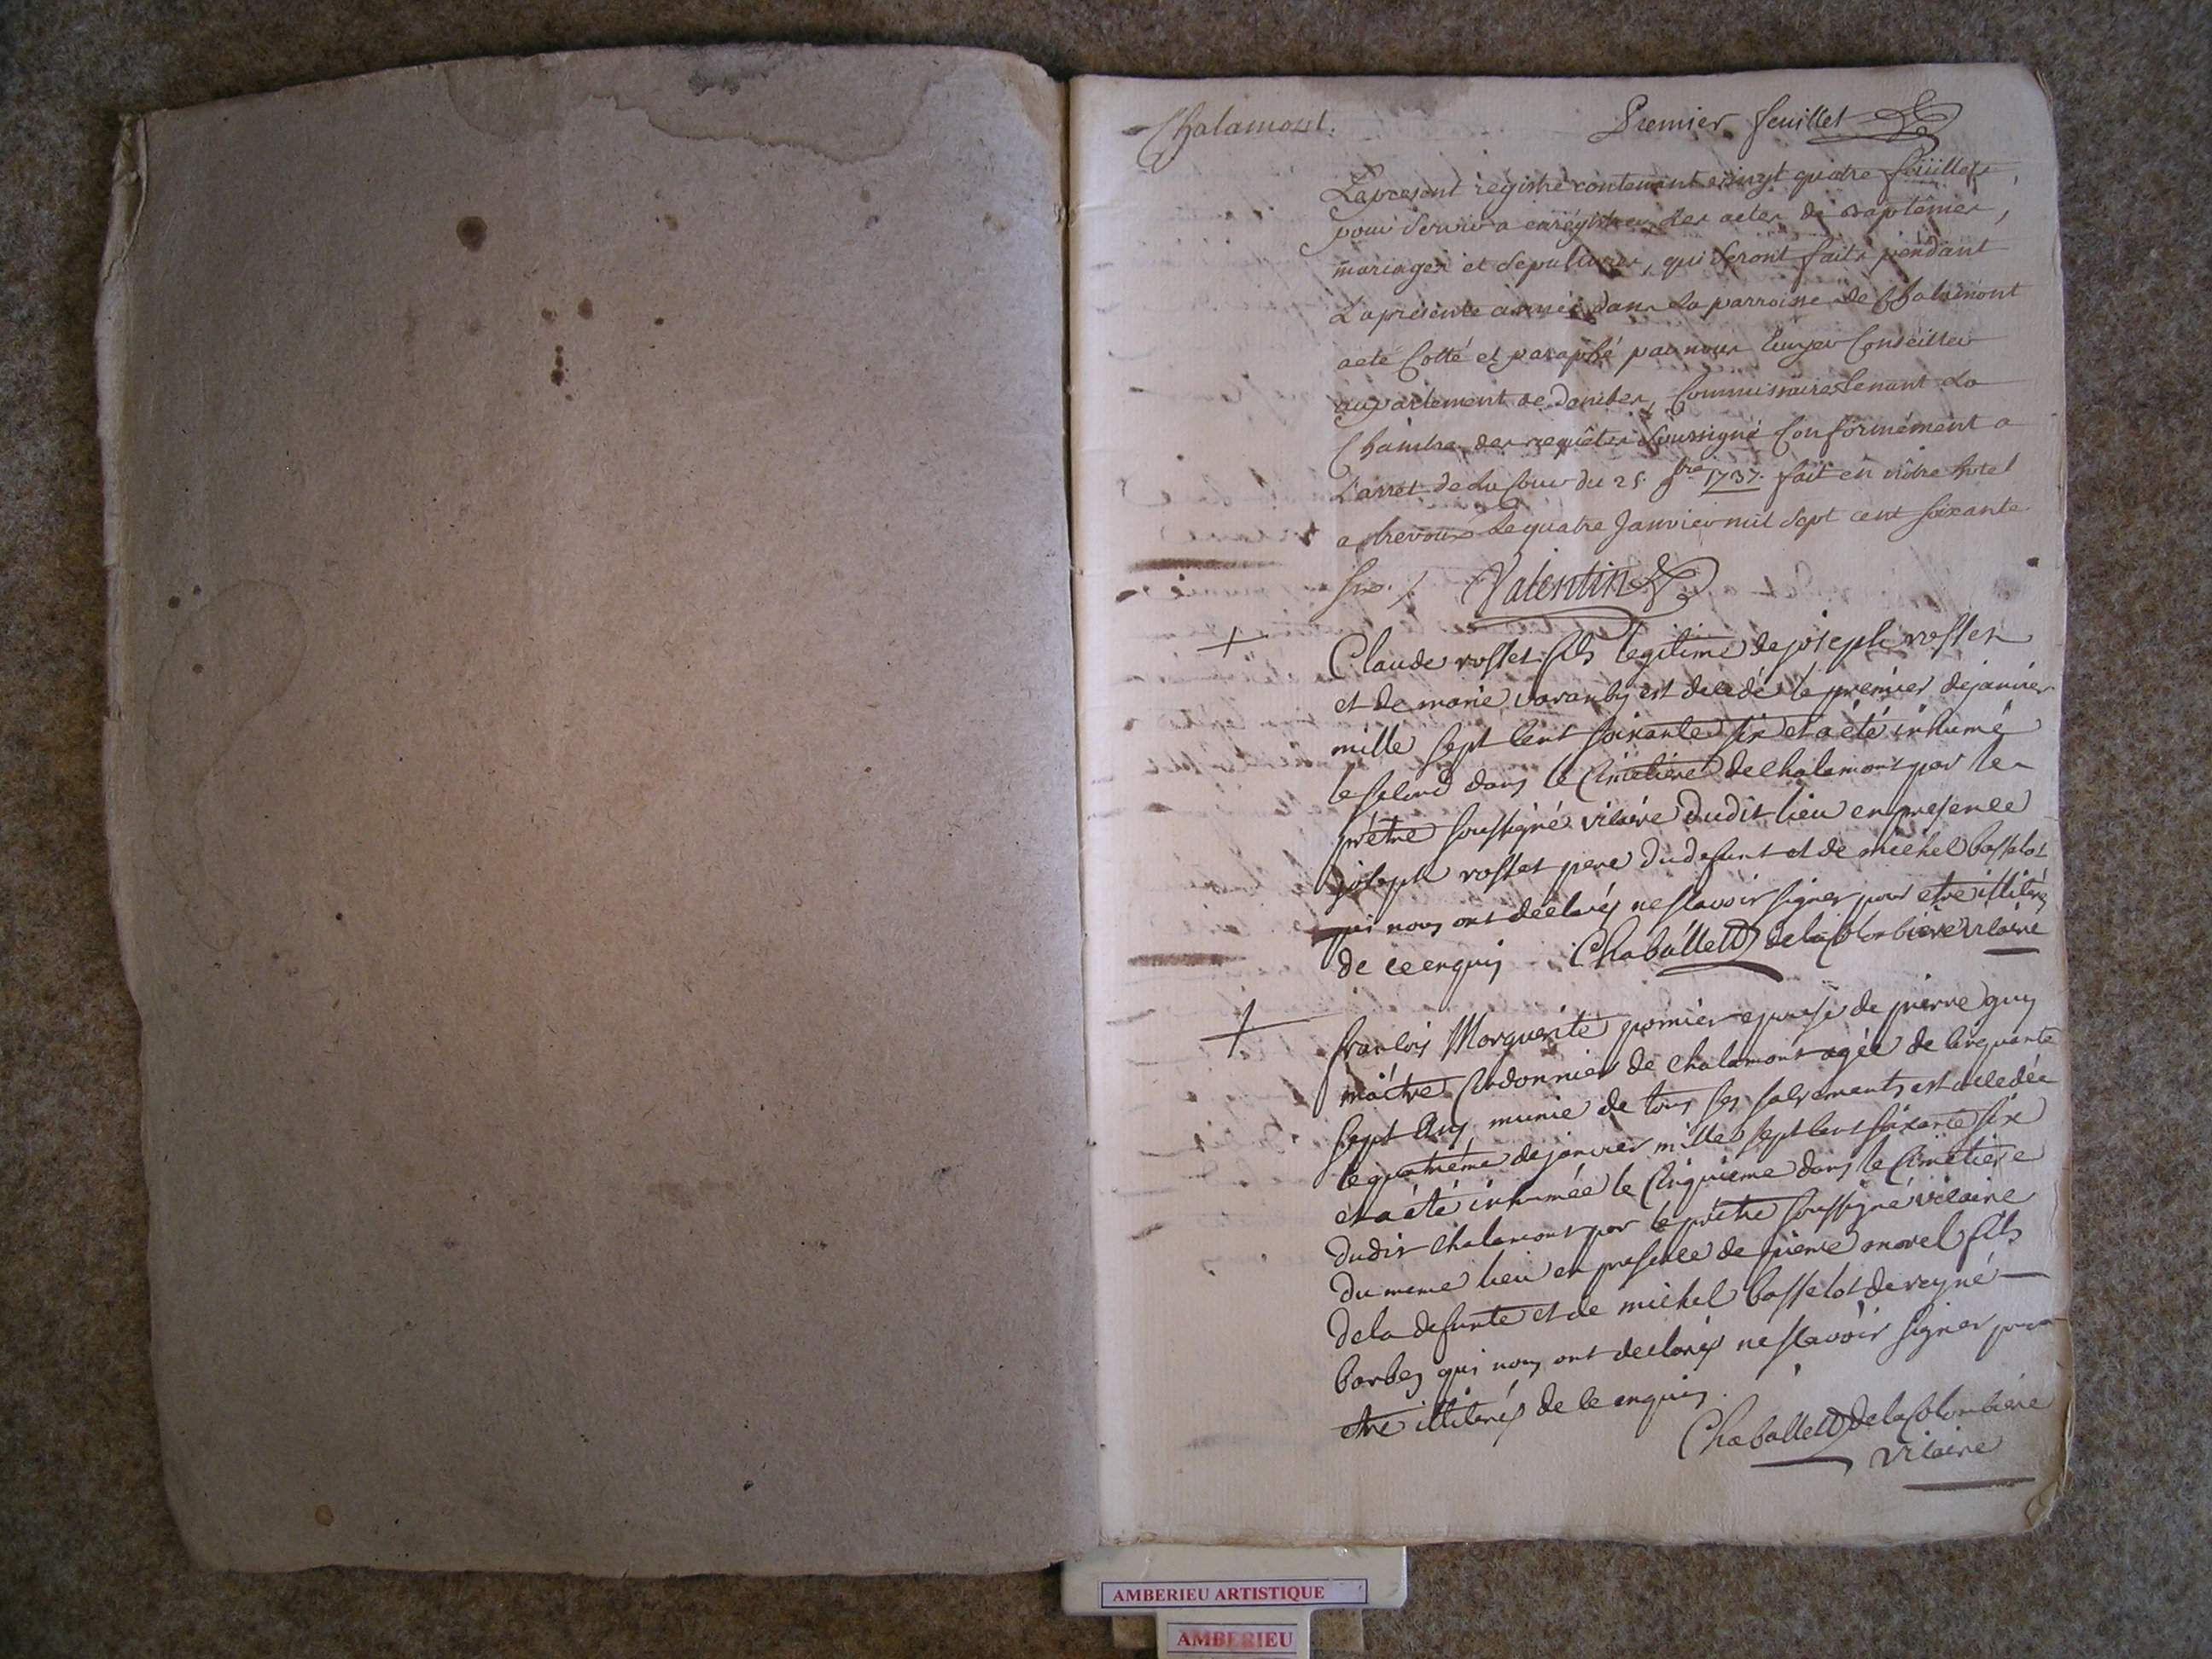 Chalamont.
Premier feuillet
Le present registre contenant vingt quatre feüillets,
pour servir a enrégistrer les actes de baptêmes,
mariages et sepultures, qui seront faits pendant
La présente année dans la parroisse de Chalamont
a eté Cotté et paraphé par nous Conseiller
au parlement de Dombes, Commissaire tenant La
Chambre des requêtes soussigné Conformément a
L'arrêt de La Cour du 25. 1737. fait en nôtre hotel
a trevoux Le quatre Janvier mil sept cent soixante
six. Valentin
Claude rosset fils legitime de joseph rosset
et de marie est decedé le premier de janvier
mille sept cent soixante six et a été inhumé
le second dans le Cimetiere de chalamont par le
prêtre soussigné vicaire dudit lieu en presence
joseph rosset pere du defunt et de michel basselot
qui nous ont declarés ne scavoir signer pour etre illiterés
de ce enquis Chaballet de la Colombiere vicaire
francois Marguerite pomier epouse de pierre guy
maître Cordonnier de chalamont agée de cinquante
sept ans munie de tous ses sacrements est decedée
le quatriéme de janvier mille sept cent soixante six
et a été inhumée le Cinquieme dans le Cimetiere
dudit chalamont par le prêtre soussigné vicaire
du meme lieu en presence de pierre morel fils
de la defunte et de michel basselot de reyné
barbes qui nous ont declarés ne scavoir signer pour
etre illiterés de ce enquis.
Chaballet de la Colombiere
vicaire
AMBERIEU ARTISTIQUE
AMBERIEU